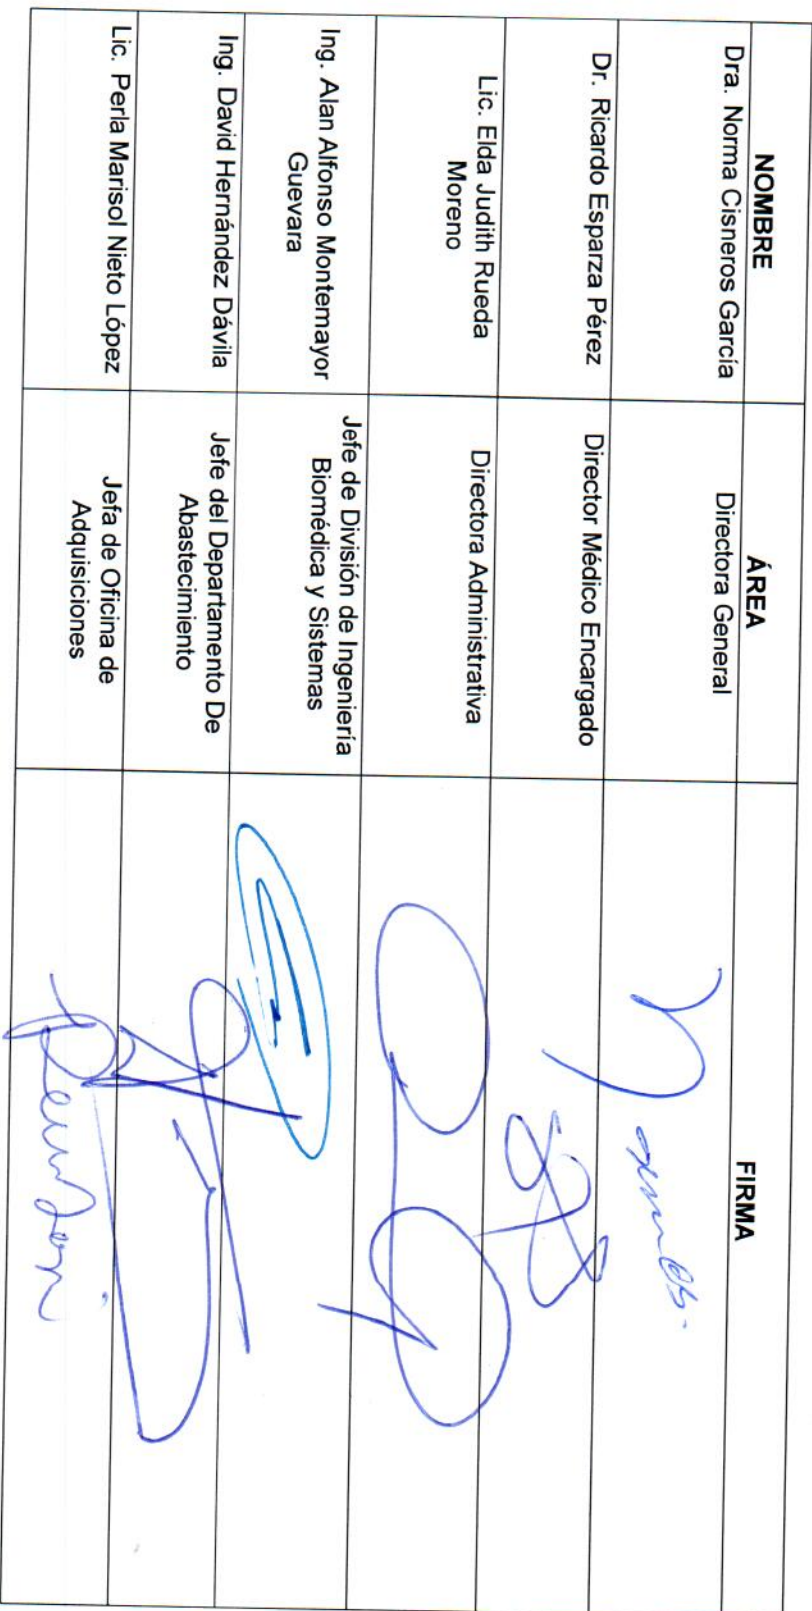 NOMBRE ÁREA FIRMA
Dra. Norma Cisneros García Directora General
Dr. Ricardo Esparza Pérez Director Médico Encargado
Lic. Elda Judith Rueda
Moreno
Directora Administrativa
Ing. Alan Alfonso Montemayor
Guevara
Jefe de División de Ingeniería
Biomédica y Sistemas
Ing. David Hernández Dávila
Jefe del Departamento De
Abastecimiento
Lic. Perla Marisol Nieto López
Jefa de Oficina de
Adquisiciones